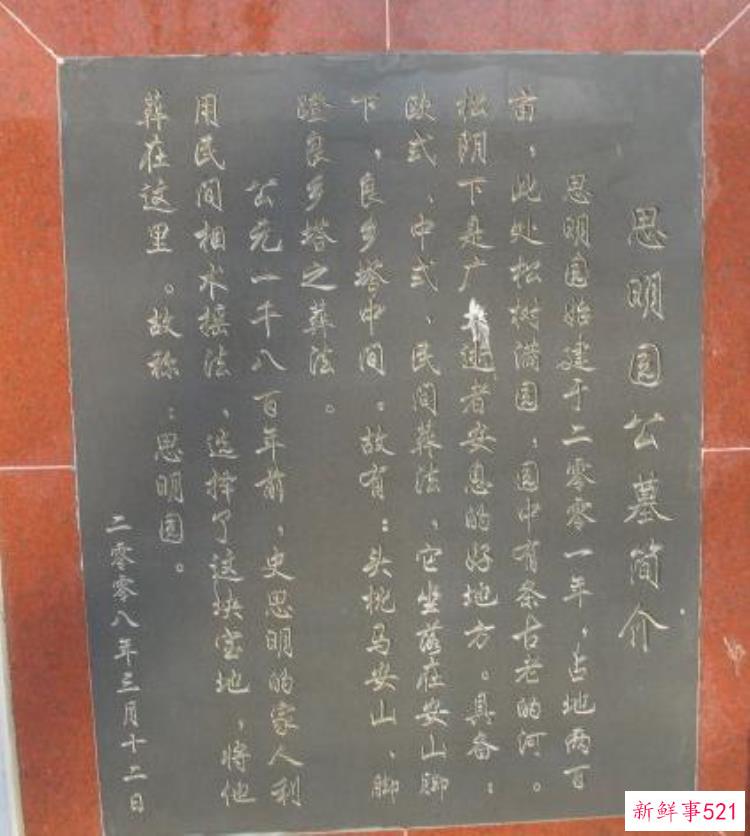 思明园公墓简介
思明园始建于二零零一年，占地两百
亩，此处松树满园，园中有条古老的河。
松阴下是广大逝者安息的好地方。具备：
欧式、中式、民间葬法，它坐落在安山脚
下，良乡塔中间。故有：头枕马安山、脚
蹬良乡塔之葬法。
公元一千八百年前，史思明的家人利
用民间相术接法，选择了这块宝地，将他
葬在这里。故称：思明园。
二零零八年三月十二日
新鲜事521